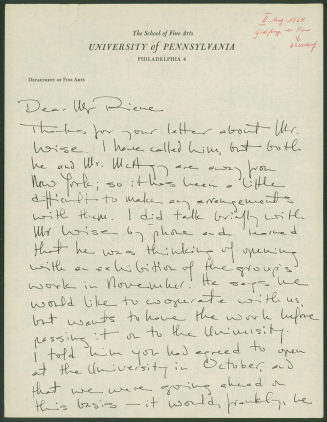 The School of Fine Arts
UNIVERSITY of PENNSYLVANIA
PHILADELPHIA 4
Aug 1964
DEPARTMENT OF FINE ARTS
Dear Mr
Thanks for your letter about Mr.
Wise. I have called him, but both
he and Mr. are away from
New York; so it has been a little
difficult to make any arrangements
with them. I did talk briefly with
Mr Wise by phone and learned
that he was thinking of opening
with an exhibition of the group's
work in November. He says he
would like to cooperate with us,
but wants to have the work before
passing it on to the University.
I told him you had agreed to open
at the University in October, and
that we were going ahead on
this basis — it would, frankly, be